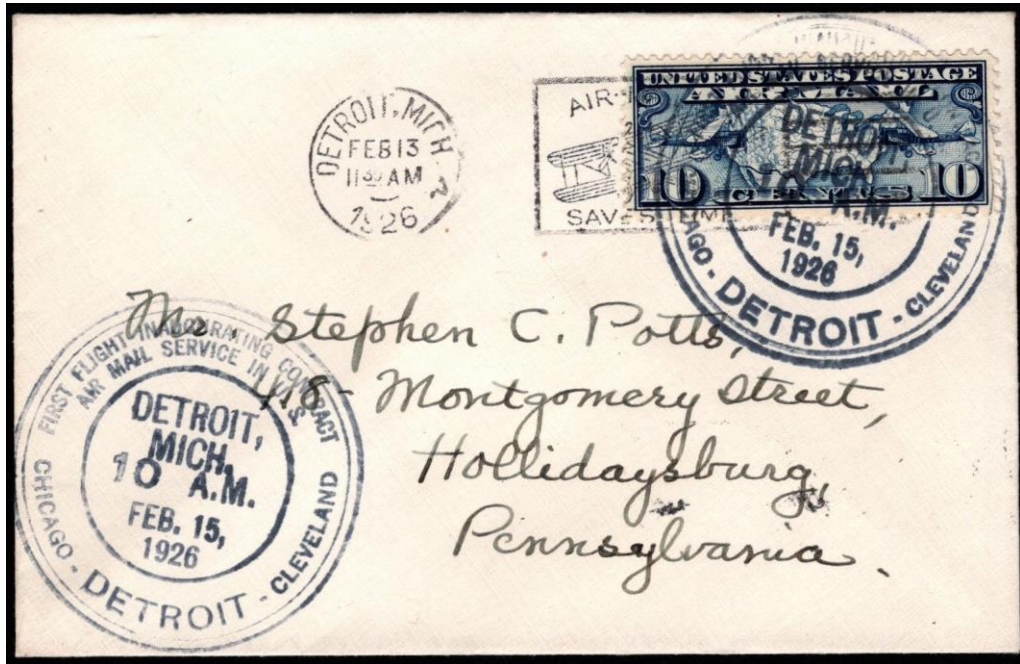 DETROIT, MICH.
FEB 13
11 30 AM
1926
AIR
SAVES TIME
UNITED STATES POSTAGE
AIR MAIL
10 CENTS 10
DETROIT
MICH.
A.M.
FEB. 15,
1926
CHICAGO - DETROIT - CLEVELAND
Mr. Stephen C. Potts,
418 - Montgomery Street,
Hollidaysburg,
Pennsylvania.
FIRST FLIGHT INAUGURATING CONTRACT
AIR MAIL SERVICE IN U.S.
DETROIT,
MICH.
10 A.M.
FEB. 15,
1926
CHICAGO - DETROIT - CLEVELAND